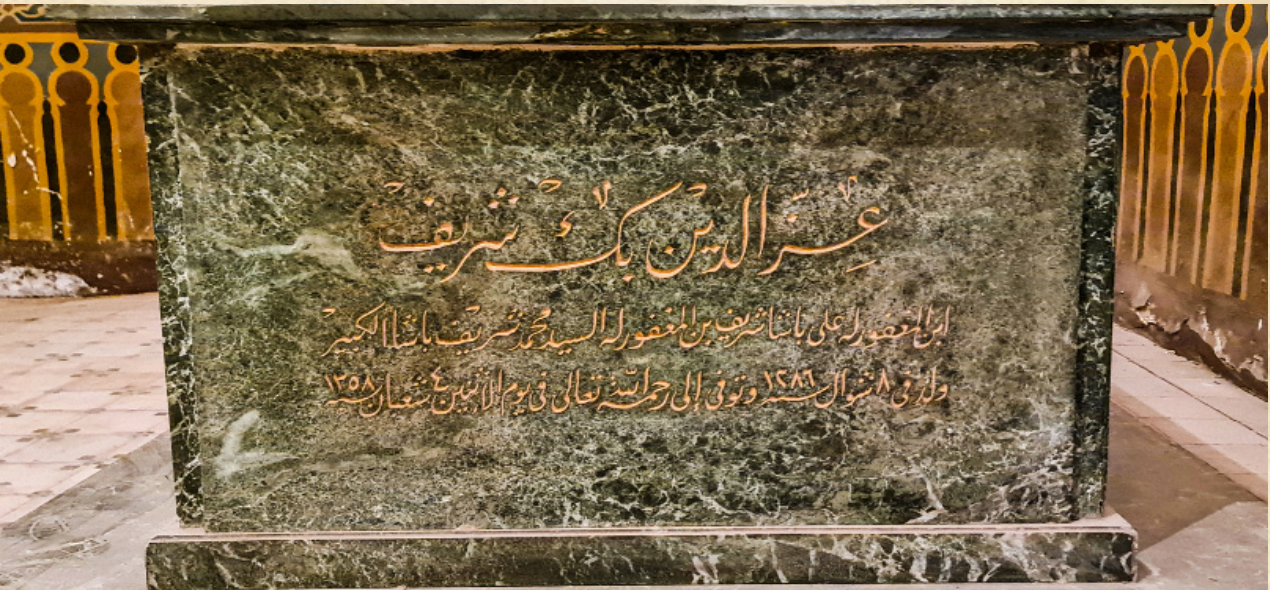 عِزّ الدين بك شريف
ابن المغفور له على باشا شريف بن المغفور له السيد محمد شريف باشا الكبير
ولد فى ٨ شوال سنة ١٢٨٦ وتوفى إلى رحمة الله تعالى فى يوم الاثنين ٤ شعبان ١٣٥٨